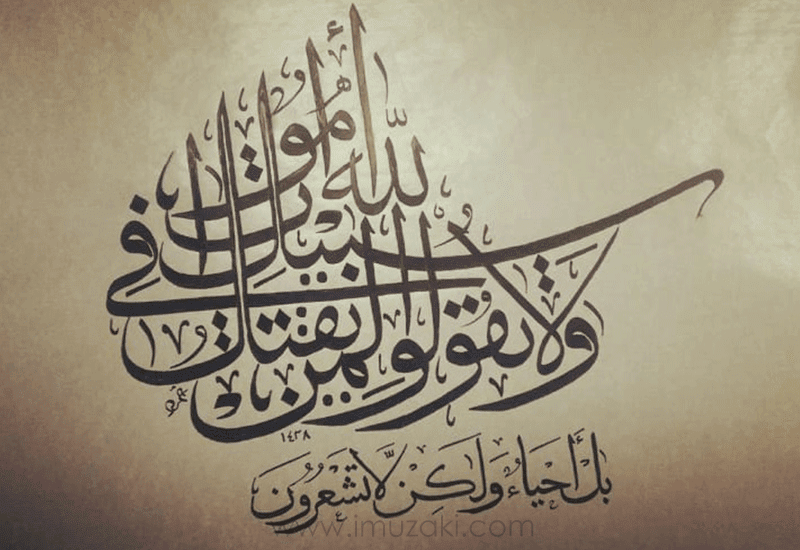 ولا تقولوا لمن يقتل في سبيل الله أموات
بل أحياء ولكن لا تشعرون
١٤٣٨
www.imuzaki.com